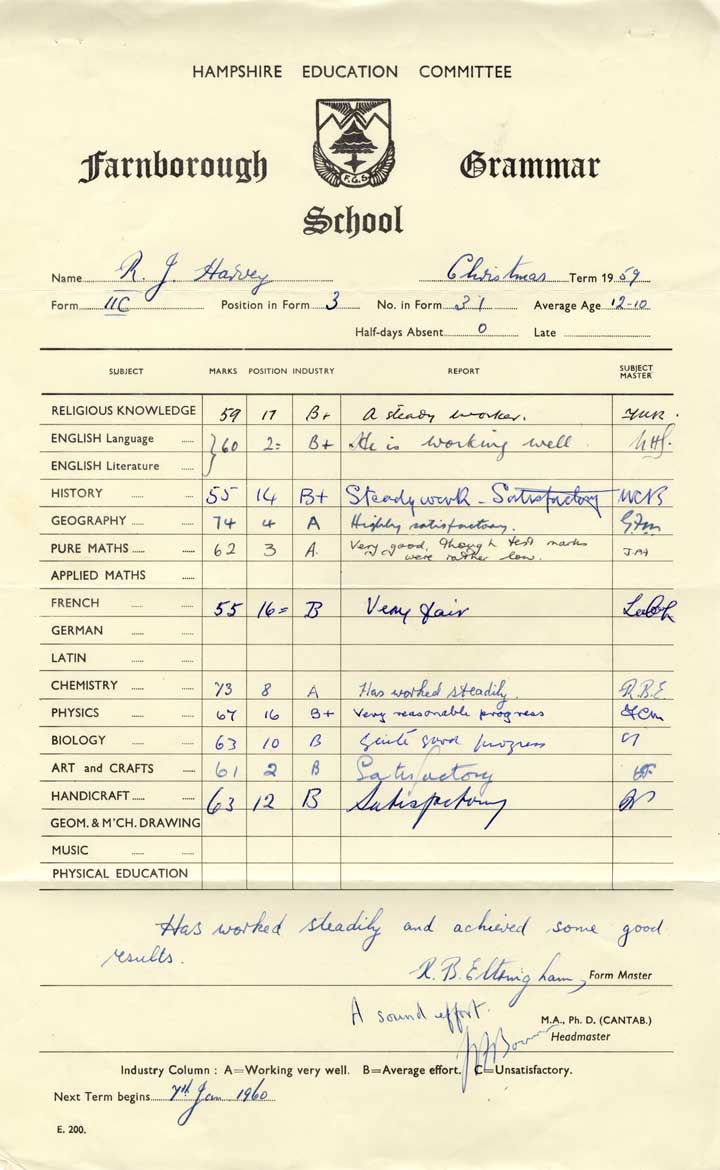 HAMPSHIRE EDUCATION COMMITTEE
Farnborough Grammar
F.G.S.
School
Name R. J. Harvey Christmas Term 1959
Form IIC Position in Form 3 No. in Form 31 Average Age 12-10
Half-days Absent 0 Late
SUBJECT MARKS POSITION INDUSTRY REPORT SUBJECT MASTER
RELIGIOUS KNOWLEDGE 59 17 B+ A steady worker.
ENGLISH Language 60 2= B+ He is working well.
ENGLISH Literature
HISTORY 55 14 B+ Steady work - Satisfactory WCB
GEOGRAPHY 74 4 A Highly satisfactory.
PURE MATHS 62 3 A. Very good, though test marks
were rather low.
APPLIED MATHS
FRENCH 55 16= B Very fair
GERMAN
LATIN
CHEMISTRY 73 8 A Has worked steadily. R.B.E.
PHYSICS 67 16 B+ Very reasonable progress
BIOLOGY 63 10 B Quite good progress
ART and CRAFTS 61 2 B Satisfactory
HANDICRAFT 63 12 B Satisfactory
GEOM. & M'CH. DRAWING
MUSIC
PHYSICAL EDUCATION
Has worked steadily and achieved some good
results.
R. B. Eltringham, Form Master
A sound effort.
M.A., Ph. D. (CANTAB.)
Headmaster
Industry Column : A=Working very well. B=Average effort. C=Unsatisfactory.
Next Term begins 7th Jan 1960
E. 200.